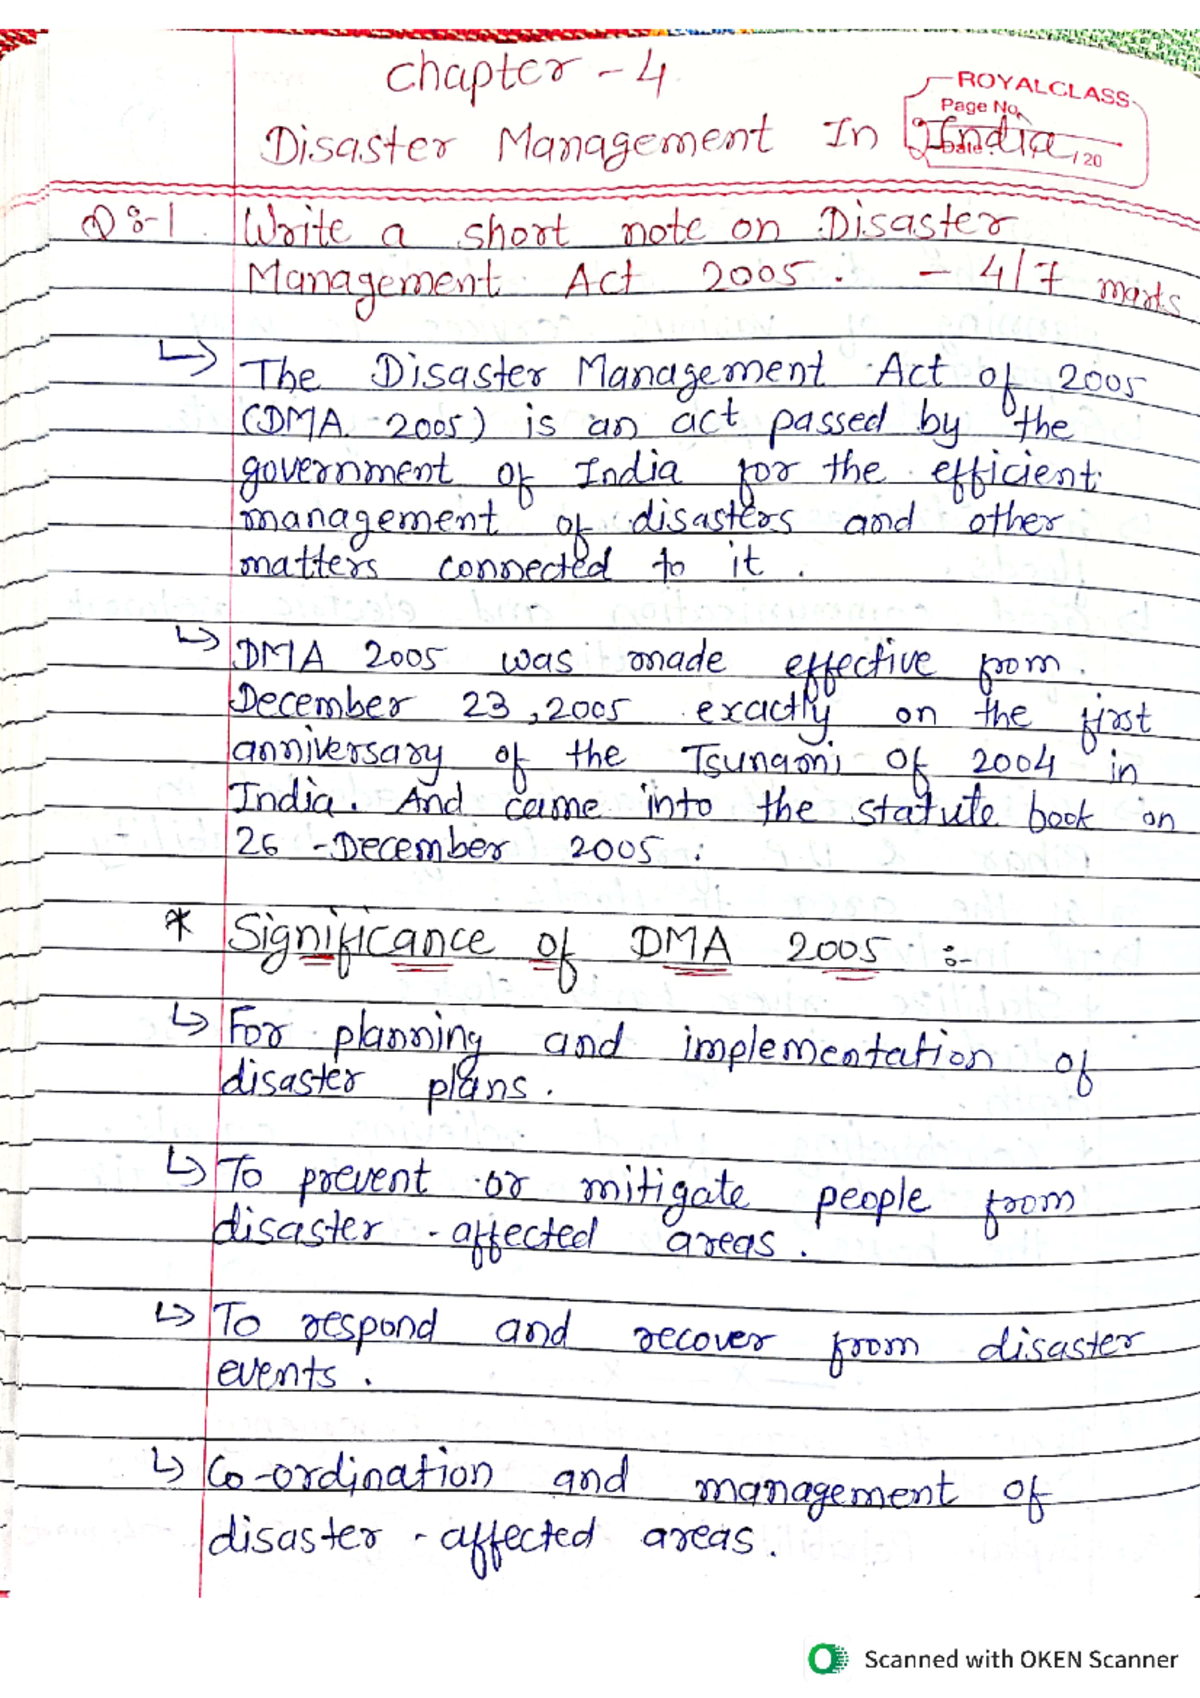 Chapter - 4
ROYALCLASS
Page No.
Disaster Management In India
Date: / /20
Q 8-1. Write a short note on Disaster
Management Act 2005. - 4/7 marks
↳ The Disaster Management Act of 2005
(DMA 2005) is an act passed by the
government of India for the efficient
management of disasters and other
matters connected to it.
↳ DMA 2005 was made effective from
December 23, 2005 exactly on the first
anniversary of the Tsunami of 2004 in
India. And came into the statute book on
26 - December 2005.
* Significance of DMA 2005 :-
↳ For planning and implementation of
disaster plans.
↳ To prevent or mitigate people from
disaster - affected areas.
↳ To respond and recover from disaster
events.
↳ Co-ordination and management of
disaster - affected areas.
Scanned with OKEN Scanner